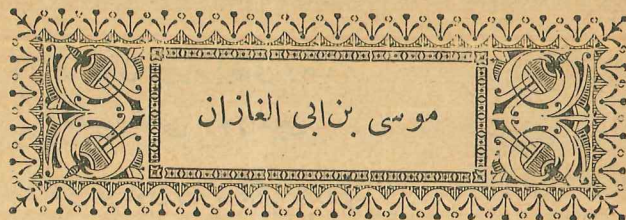 موسى بن ابى الغازان